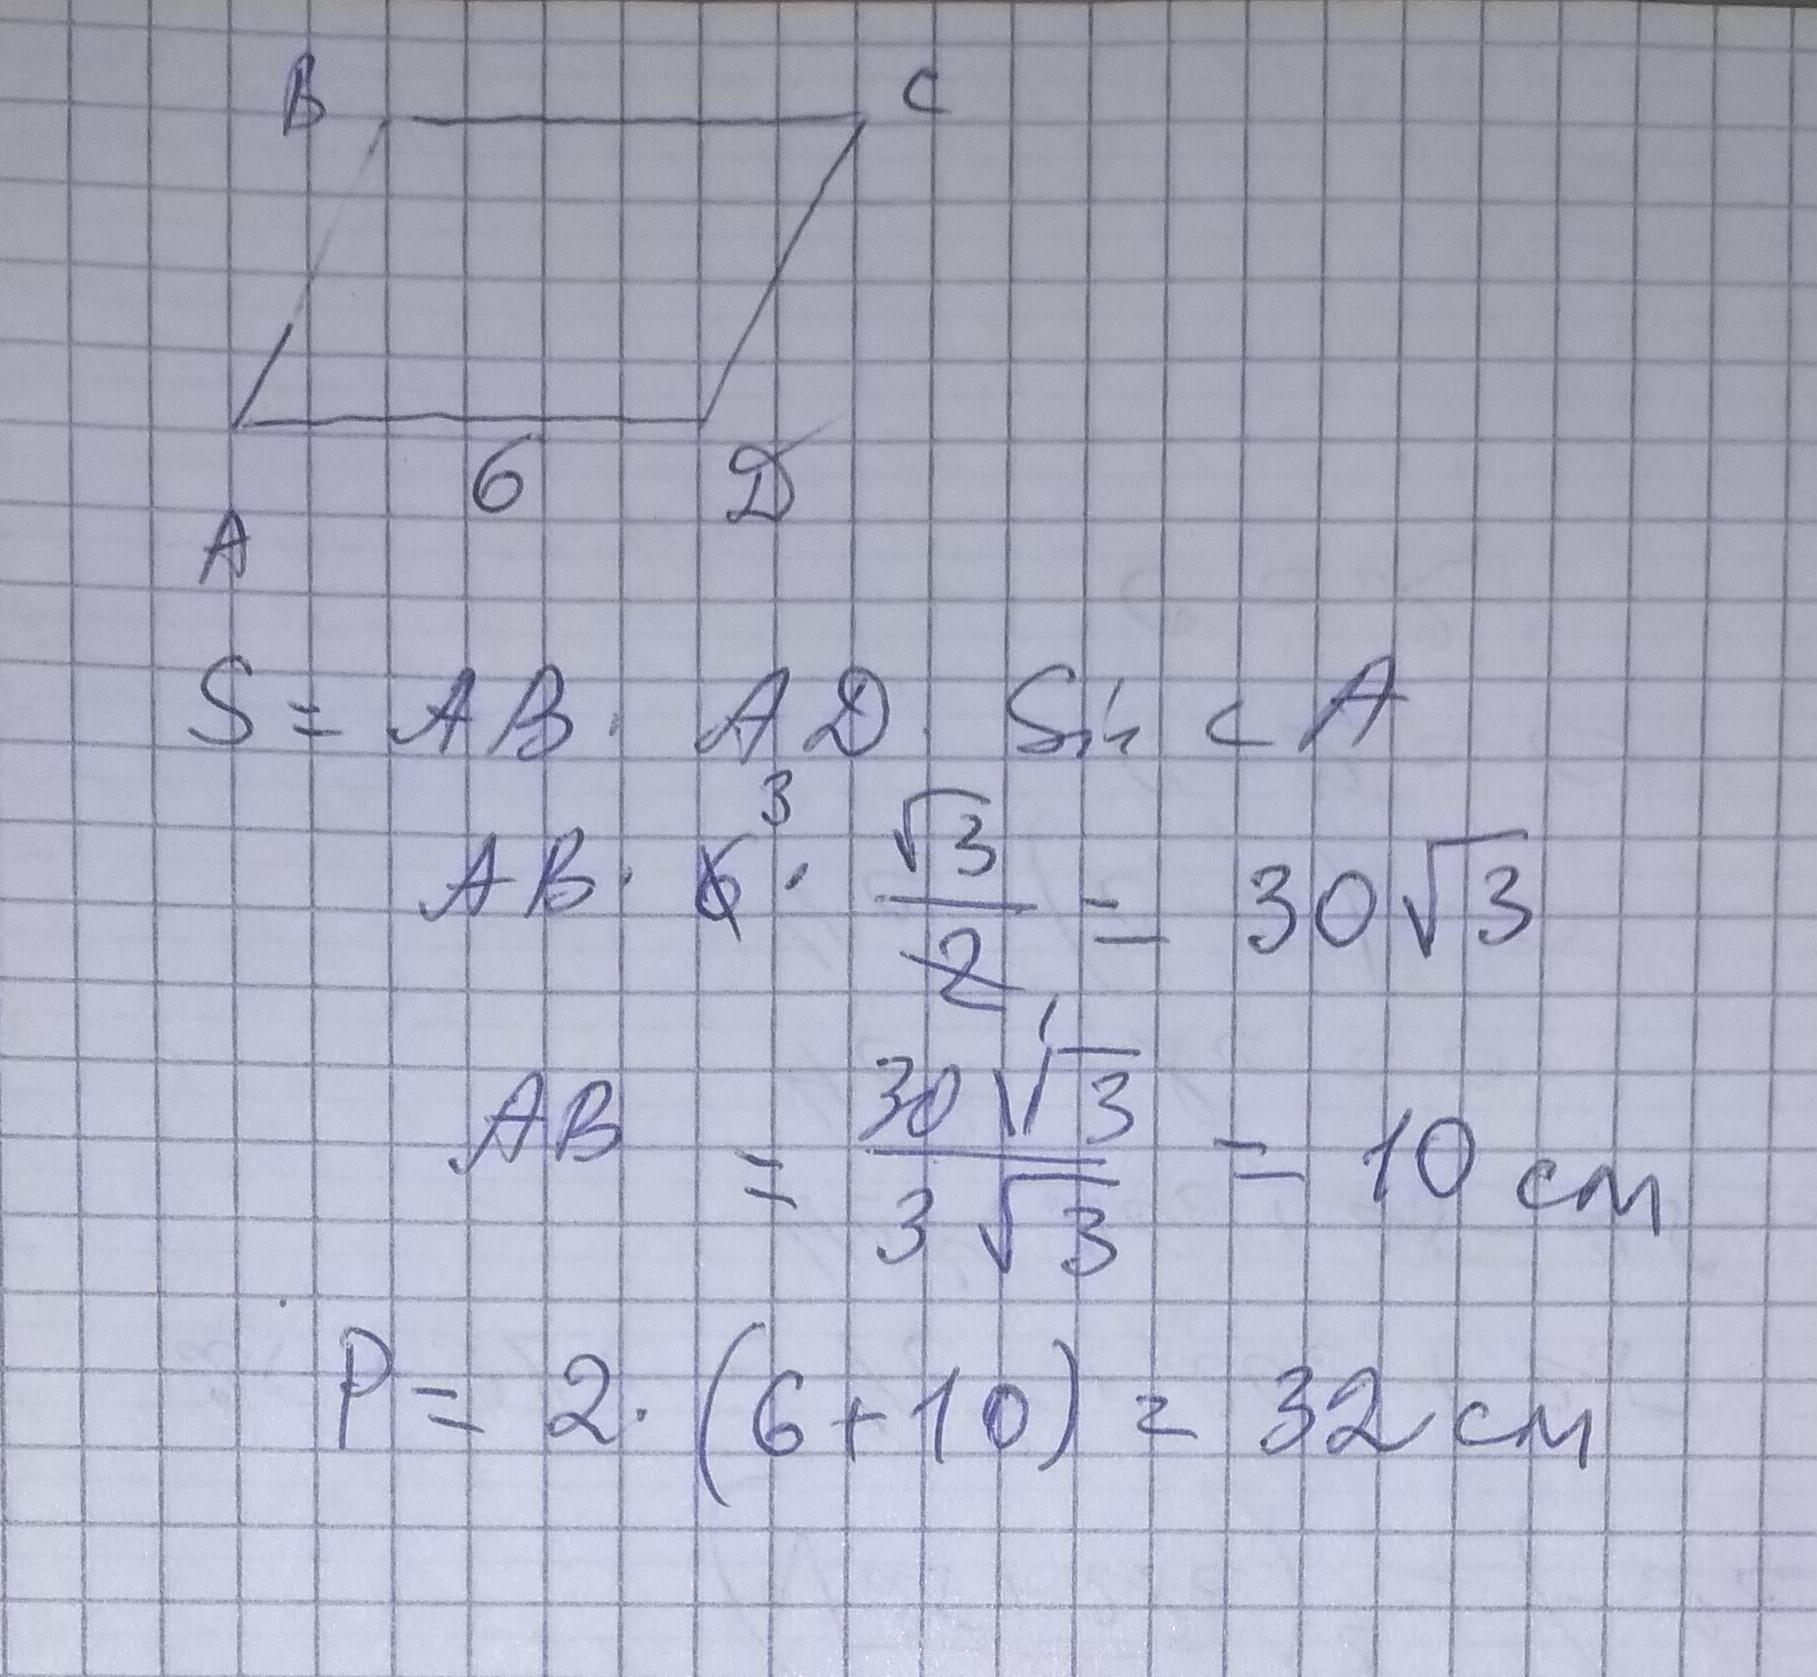 B C
6 D
A
S = AB · AD · Sin <A
AB · 6 3 · √3/2 = 30√3
AB = 30√3/3√3 = 10 см
P = 2 · (6 + 10) = 32 см